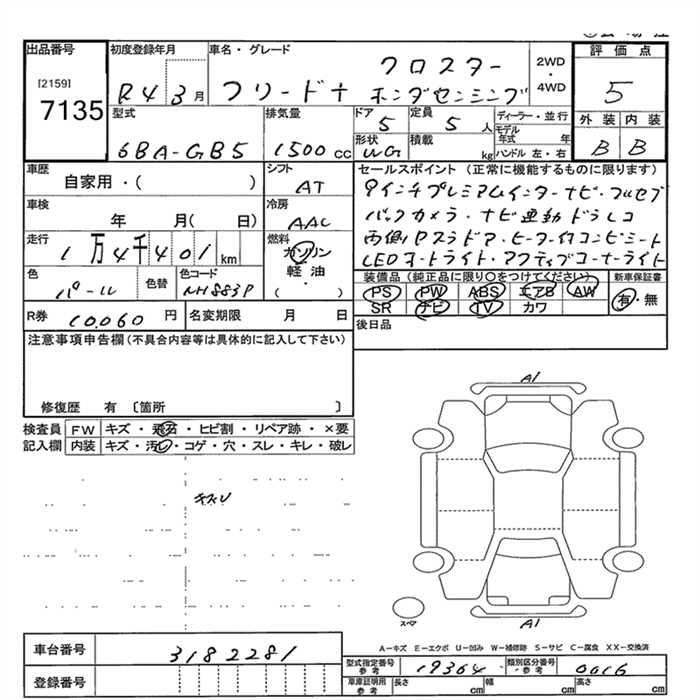 出品番号
[2159]
7135
初度登録年月
R4 3月
車名・グレード
クロスター
フリード+ ホンダセンシング
2WD
・
4WD
評価点
5
外装 内装
B B
型式
6BA-GB5
排気量
1500cc
ドア
5
定員
5人
ディーラー・並行
モデル年式 年
ハンドル 左・右
形状
WG
積載
kg
車歴
自家用・( )
シフト
AT
セールスポイント(正常に機能するものに限ります)
9インチプレミアムインターナビ・フルセグ
バックカメラ・ナビ連動ドラレコ
両側Pスラドア・ヒーター付コンビシート
LEDオートライト・アクティブコーナーライト
車検
年 月( 日)
冷房
AAC
走行
1万4千401km
燃料
ガソリン
軽油・
( )
色
パール
色替
色コード
NH883P
装備品(純正品に限り○をつけてください)
PS PW ABS エアB AW
SR ナビ TV カワ
新車保証書
有・無
R券
10,060円
名変期限 月 日
後日品
注意事項申告欄(不具合内容等は具体的に記入して下さい)
修復歴 有〔箇所 〕
検査員記入欄
FW キズ・飛石・ヒビ割・リペア跡・×要
内装 キズ・汚し・コゲ・穴・スレ・キレ・破レ
キズU
A1
A1
スペア
A-キズ E-エクボ U-凹み W-補修跡 S-サビ C-腐食 XX-交換済
車台番号
3182281
登録番号
型式指定番号 参考
19364
類別区分番号 参考
0016
車庫証明用 参考
長さ cm 幅 cm 高さ cm